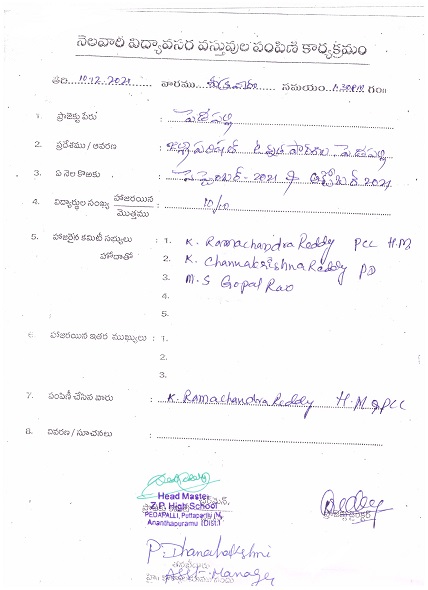 నెలవారి విద్యావసర వస్తువుల పంపిణి కార్యక్రమం
తేది: 10-12-2021 వారము శుక్రవారం సమయం 4:30PM గం॥
1. ప్రాజెక్టు పేరు : పెదపల్లి
2. ప్రదేశము / ఆవరణ : జిల్లా పరిషత్ ఉన్నత పాఠశాల, పెదపల్లి
3. ఏ నెల కొఱకు : సెప్టెంబర్-2021 & అక్టోబర్ 2021
4. విద్యార్థుల సంఖ్య హాజరయిన / మొత్తము : 10/10
5. హాజరైన కమిటీ సభ్యులు హోదాతో : 1. K. Ramachandra Reddy PCC H.M
2. K. Channakrishna Reddy PD
3. M.S Gopal Rao
4.
5.
6. హాజరయిన ఇతర ముఖ్యులు : 1.
2.
3.
7. పంపిణీ చేసిన వారు : K. Ramachandra Reddy H.M & PCC
8. వివరణ / సూచనలు :
Head Master
Z.P. High School
PEDAPALLI, Puttaparthi (M),
Ananthapuramu (Dist.)
P. Dhanalakshmi
Asst-Manager